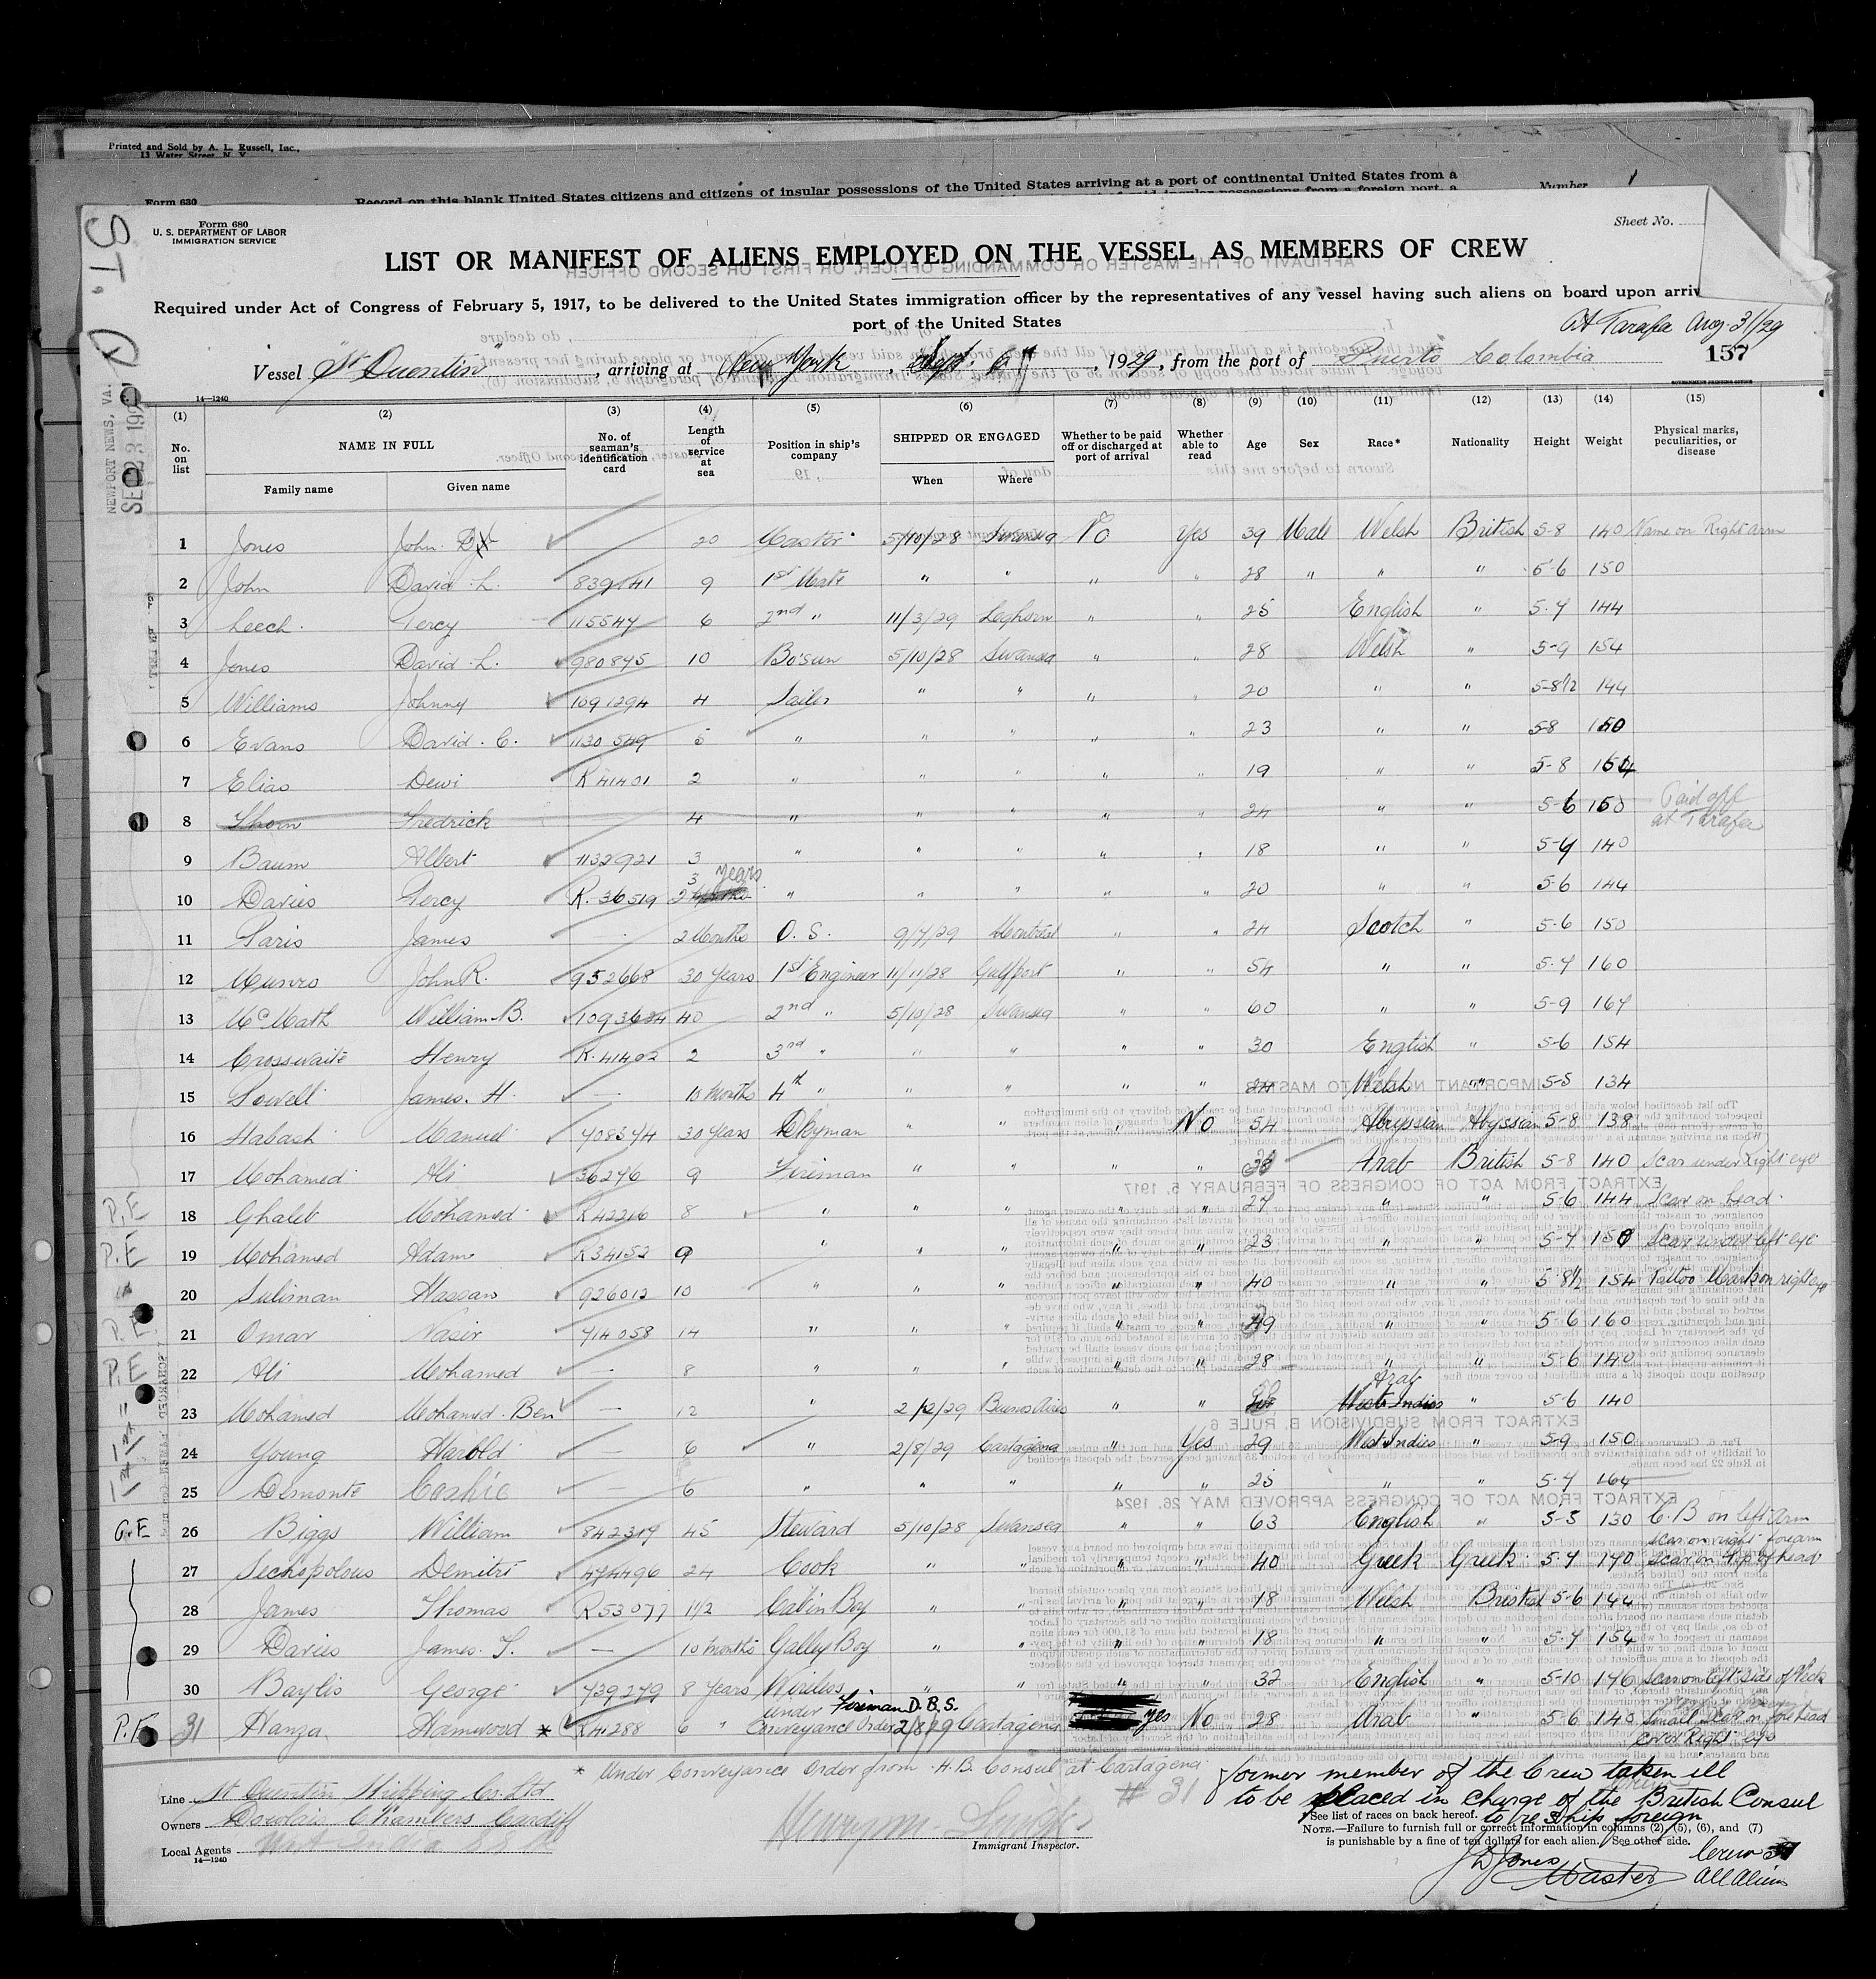 Printed and Sold by A. L. Russell, Inc.,
13 Water Street, N. Y.
Form 630
Record on this blank United States citizens and citizens of insular possessions of the United States arriving at a port of continental United States from a
Number
Form 680
U. S. DEPARTMENT OF LABOR
IMMIGRATION SERVICE
Sheet No.
ST. Q
LIST OR MANIFEST OF ALIENS EMPLOYED ON THE VESSEL AS MEMBERS OF CREW
Required under Act of Congress of February 5, 1917, to be delivered to the United States immigration officer by the representatives of any vessel having such aliens on board upon arriv
port of the United States
At Tarafa Aug 31/29
Vessel "St Quentin", arriving at New York, Sept. 6, 1929, from the port of Puerto Colombia 157
14—1240
GOVERNMENT PRINTING OFFICE
NEWPORT NEWS, VA.
(1) (2) (3) (4) (5) (6) (7) (8) (9) (10) (11) (12) (13) (14) (15)
No. on list NAME IN FULL No. of seaman's identification card Length of service at sea Position in ship's company SHIPPED OR ENGAGED Whether to be paid off or discharged at port of arrival Whether able to read Age Sex Race* Nationality Height Weight Physical marks, peculiarities, or disease
Family name Given name When Where
1 Jones John D 20 Master 5/10/28 Swansea No Yes 39 Male Welsh British 5-8 140 Name on Right arm
2 John David L. 839141 9 1st Mate " " " " 28 " " " 5-6 150
3 Leech Percy 115547 6 2nd " 11/3/29 Leghorn " " 25 English " 5-7 144
4 Jones David L. 980875 10 Bo'sun 5/10/28 Swansea " " 28 Welsh " 5-9 154
5 Williams Johnny 1091294 4 Sailor " " " " 20 " " 5-8½ 144
6 Evans David C. 1130549 5 " " " " " 23 " " 5-8 150
7 Elias Dewi R 41401 2 " " " " " 19 " " 5-8 154
8 Thorn Fredrick — 4 " " " " " 24 " " 5-6 150 Paid off at Tarafa
9 Baum Albert 1132921 3 " " " " " 18 " " 5-7 140
10 Davies Percy R. 36519 3 years " " " " " 20 " " 5-6 144
11 Paris James — 2 Months O. S. 9/7/29 Montreal " " 24 Scotch " 5-6 150
12 Munro John R. 952668 30 Years 1st Engineer 11/11/28 Gulfport " " 54 " " 5-7 160
13 McMath William B. 1093634 40 2nd " 5/10/28 Swansea " " 60 " " 5-9 167
14 Crosswaite Henry R. 41402 2 3rd " " " " " 30 English " 5-6 154
15 Powell James. H. — 10 Months 4th " " " " " 24 Welsh " 5-5 134
16 Habash Manuel 708374 30 Years Dkyman " " " No 54 Abyssian Abyssian 5-8 138
17 Mohamed Ali 36276 9 Fireman " " " " Arab British 5-8 140 Scar under Right eye
P.E 18 Ghaleb Mohamed R42216 8 " " " " " 27 " " 5-6 144 Scar on head
P.E 19 Mohamed Adam R34152 9 " " " " " 23 " " 5-7 150 Scar under left eye
20 Suliman Hassan 926012 10 " " " " " 40 " " 5-8½ 154 Tattoo Mark on right eye
P.E 21 Omar Nasir 714058 14 " " " " " " " 5-6 160
P.E 22 Ali Mohamed — 8 " " " " " 28 " " 5-6 140
23 Mohamed Mohamed Ben — 12 " 2/2/29 Buenos Aires " " Arab " 5-6 140
24 Young Harold — 6 " 2/8/29 Cartagena " Yes 29 West Indies " 5-9 150
25 Demonte — 6 " " " " " 25 " " 5-7 164
26 Biggs William 842317 45 Steward 5/10/28 Swansea " " 63 English " 5-5 130 C.B on left Arm scar on right forearm
27 Sechopolous Demitri 474496 24 Cook " " " " 40 Greek Greek 5-7 170 Scar on top of head
28 James Thomas R53077 1½ Cabin Boy " " " " 18 Welsh 5-6 144
29 Davies James T. — 10 Months Galley Boy " " " " 18 " " 5-7 154
30 Baylis George 739279 8 Years Wireless " " " " 32 English " 5-10 176 Scar on left side of Neck
P.E 31 Hanza Hamwood * R4288 6 " under Fireman D.B.S. Conveyance Order 2/8/29 Cartagena yes No 28 Arab " 5-6 140 Small scar on forehead over Right eye
* Under Conveyance Order from H.B. Consul at Cartagena
# 31
former member of the Crew taken ill
to be placed in charge of the British Consul
to re ship foreign
Line St Quentin Shipping Co. Ltd
Owners Dowlais Chambers Cardiff
Local Agents
14—1240
Immigrant Inspector.
*See list of races on back hereof.
NOTE.—Failure to furnish full or correct information in columns (2), (5), (6), and (7)
is punishable by a fine of ten dollars for each alien. See other side.
J D Jones
Master
Crew 31
All Aliens